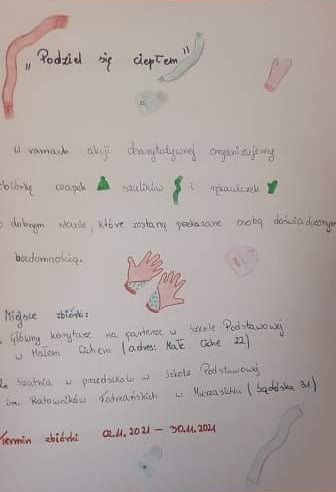 „Podziel się ciepłem”
W ramach akcji charytatywnej organizujemy
zbiórkę czapek szalików i rękawiczek
o dobrym stanie, które zostaną przekazane osobą doświadczonym
bezdomnością.
Miejsce zbiórki:
Główny korytarz na parterze w Szkole Podstawowej
w Małem Cichem (adres: Małe Ciche 22)
2. Szatnia w przedszkolu w Szkole Podstawowej
im. Ratowników Tatrzańskich w Murzasichlu (Sądelska 31)
Termin zbiórki 02.11.2021 – 30.11.2021